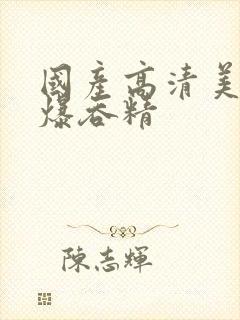 國產高清美
爆吞精
陳志輝